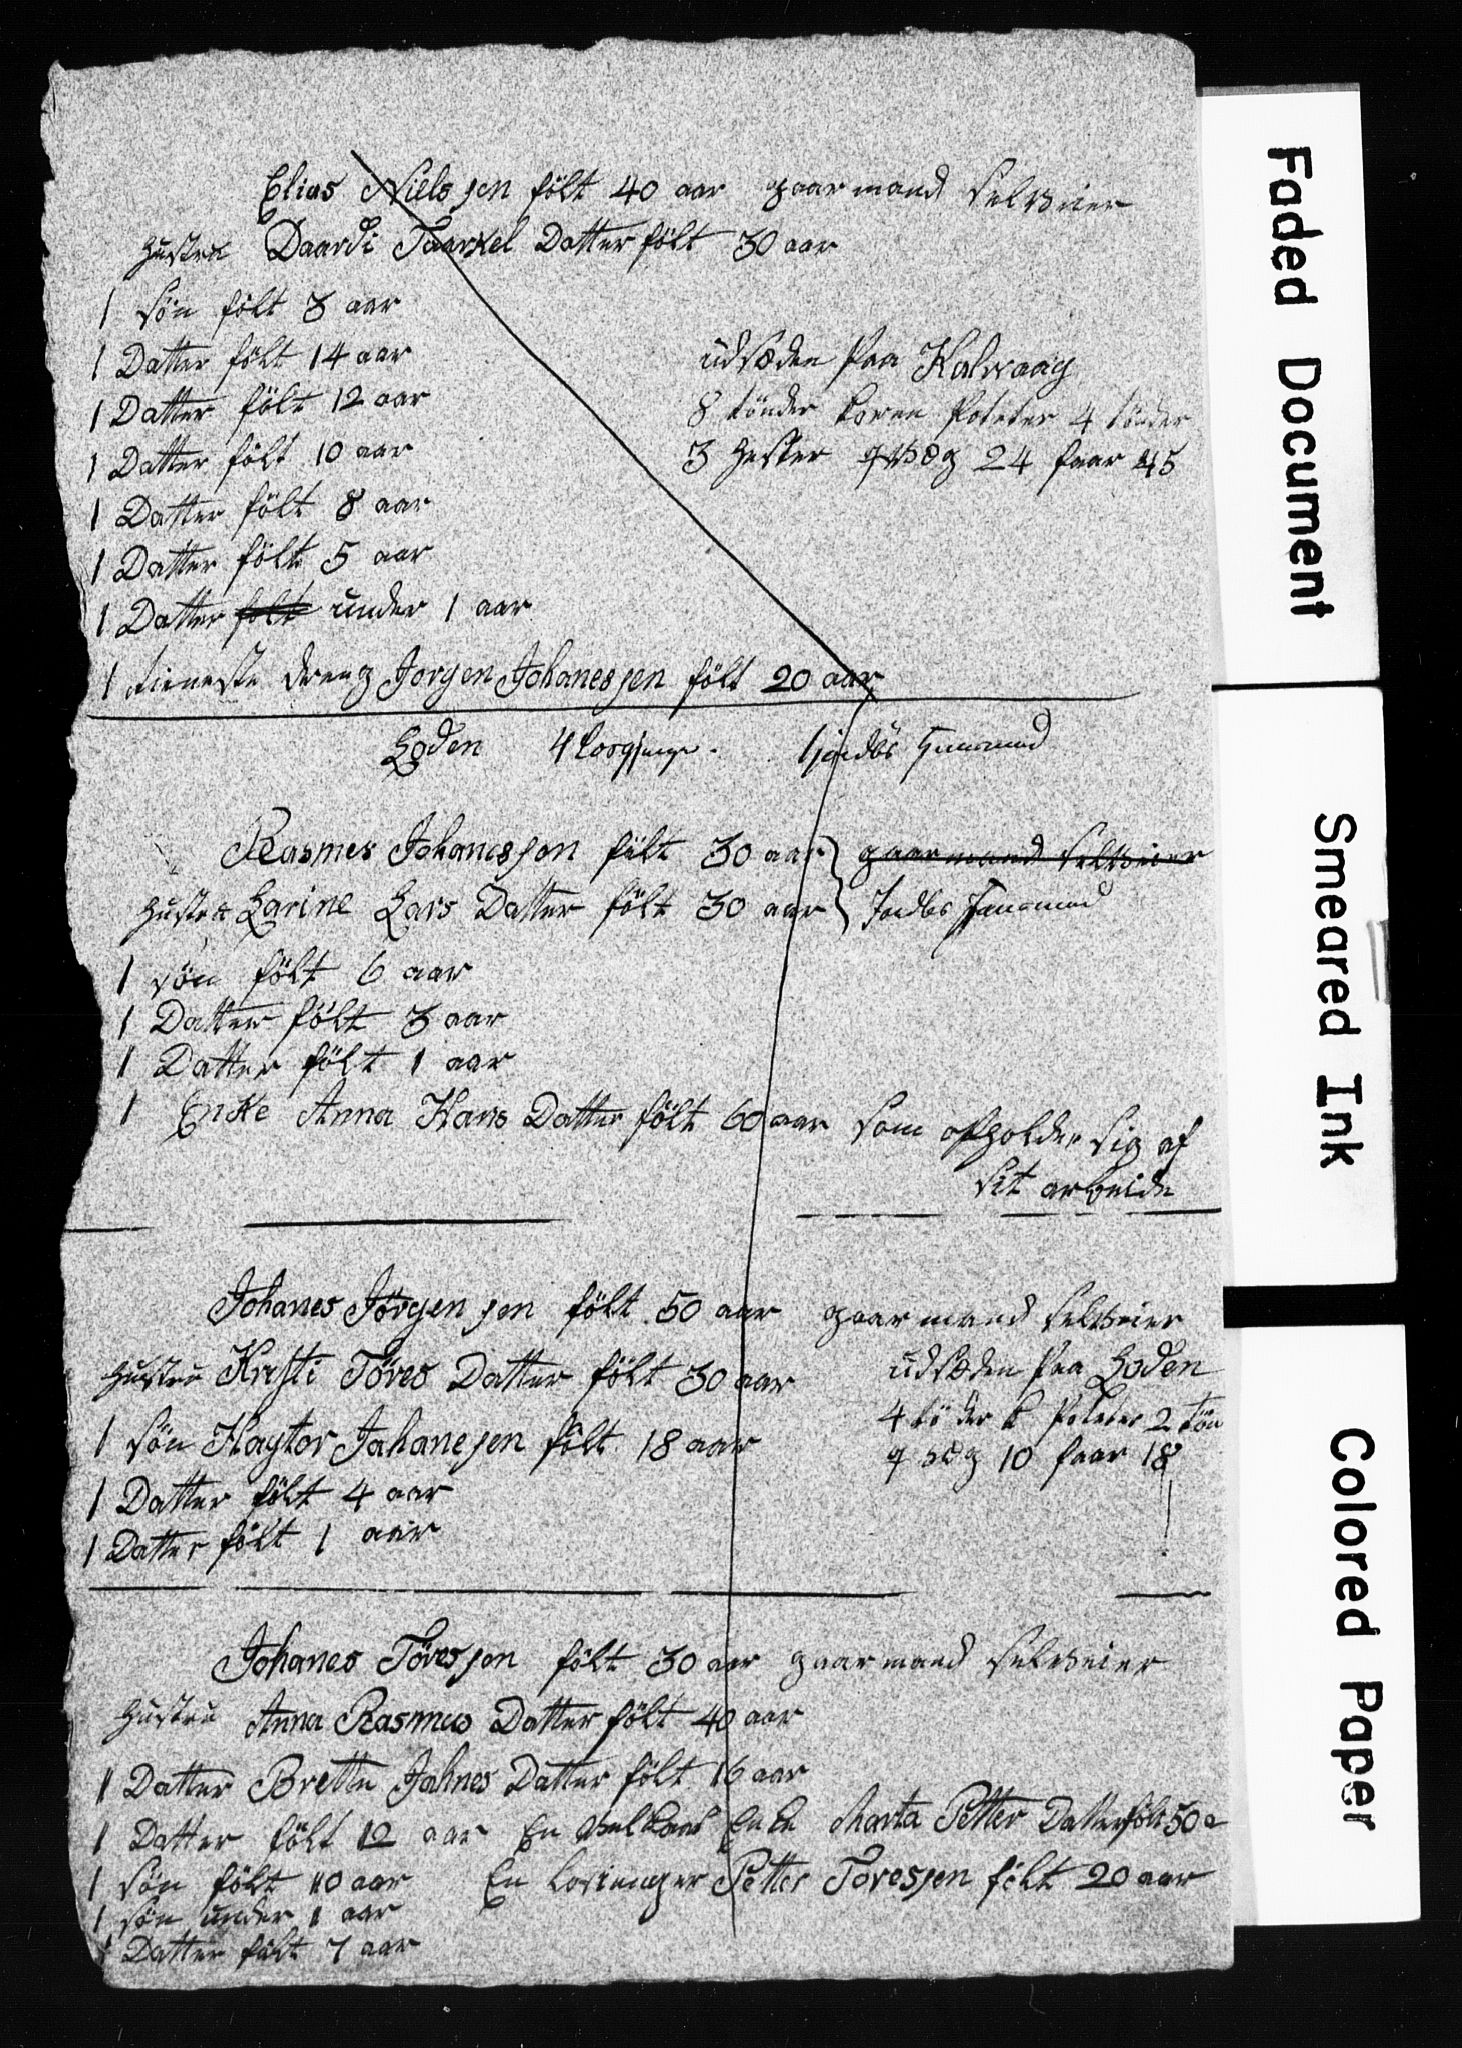 Elias Nielssen fölt 40 aar gaarmand selvseier
Hustru Daardi Taarkel Datter fölt 30 aar
1 sön fölt 3 aar
1 Datter fölt 14 aar
udsæden paa Kalvaag
1 Datter fölt 12 aar
8 tönder Poteter 4 tönder
1 Datter fölt 10 aar
3 Hester qvæg 24 faar 45
1 Datter fölt 8 aar
1 Datter fölt 5 aar
1 Datter fölt under 1 aar
1 tieneste dreng Jorgen Johanessen fölt 20 aar
Loden 4 1 jordbs Huusmand
Rasmes Johanessen fölt 30 aar gaarmand selvseier
Hustru Larine Lars Datter fölt 30 aar Jordbs Huusmand
1 sön fölt 6 aar
1 Datter fölt 3 aar
1 Datter fölt 1 aar
1 Enke Anna Hans Datter fölt 60 aar som opholder sig af
sit arbeide
Johanes Jörgensen fölt 50 aar gaarmand selvseier
Hustru Kristi Töres Datter fölt 30 aar
udsæden paa Loden
1 sön Jahanesen fölt 18 aar
4 tö der k Poteter 2 tön
q væg 10 faar 18
1 Datter fölt 4 aar
1 Datter fölt 1 aar
Johanes Töressen fölt 30 aar gaarmand selvseier
Hustru Anna Rasmus Datter fölt 40 aar
1 Datter Brette Jahnes Datter fölt 16 aar
1 Datter fölt 12 aar En Enke Marta Petter Datter fölt 50 a
1 sön fölt 10 aar En losienger Petter Toressen fölt 20 aar
1 sön under 1 aar
1 Datter fölt 7 aar
Faded Document
Smeared Ink
Colored Paper